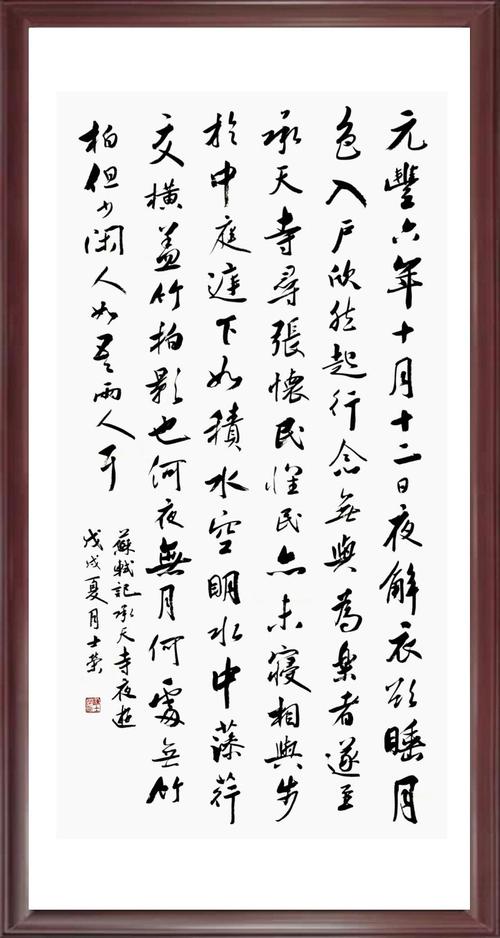 元豐六年十月十二日夜解衣欲睡月
色入戶欣然起行念無與為樂者遂至
承天寺尋張懷民懷民亦未寢相與步
於中庭庭下如積水空明水中藻荇
交橫蓋竹柏影也何夜無月何處無竹
柏但少閑人如吾兩人耳
蘇軾記承天寺夜遊
戊戌夏月士榮